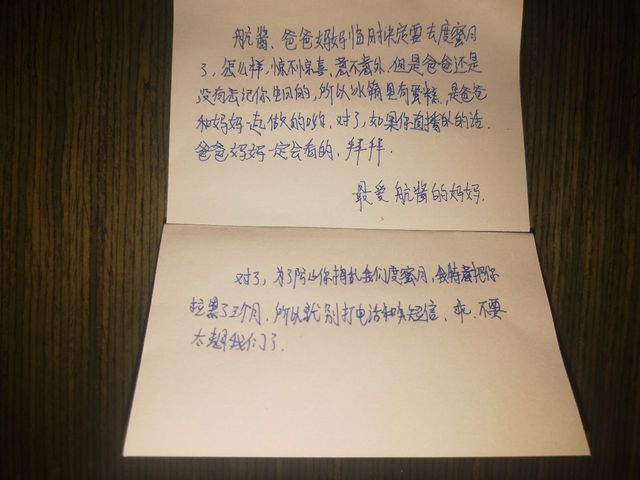 航酱、爸爸妈妈临时决定要去度蜜月
了，怎么样，惊不惊喜、意不意外．但是爸爸还是
没有忘记你生日的，所以冰箱里有蛋糕，是爸爸
和妈妈一起做的哟．对了，如果你直播的话．
爸爸妈妈一定会看的、拜拜．
最爱航酱的妈妈．
对了，为了防止你捣乱我们度蜜月，我特意把你
拉黑了三个月．所以就别打电话和发短信、乖．不要
太想我们了．